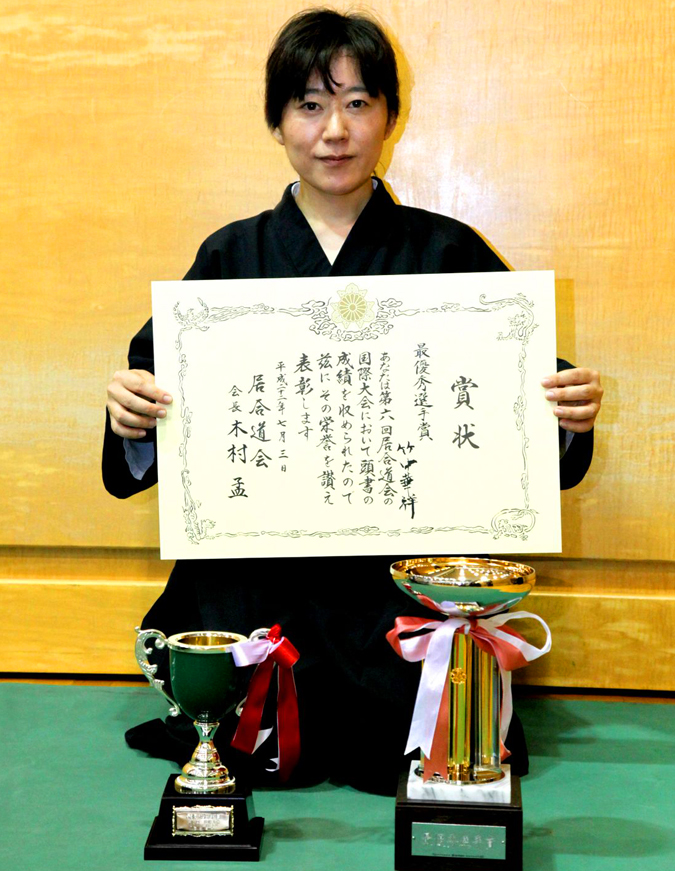 賞状
最優秀選手賞
竹中華祥
あなたは第六回居合道会の
国際大会において頭書の
成績を収められたので
茲にその栄誉を讃え
表彰します
平成二十二年七月三日
居合道会
会長 木村孟